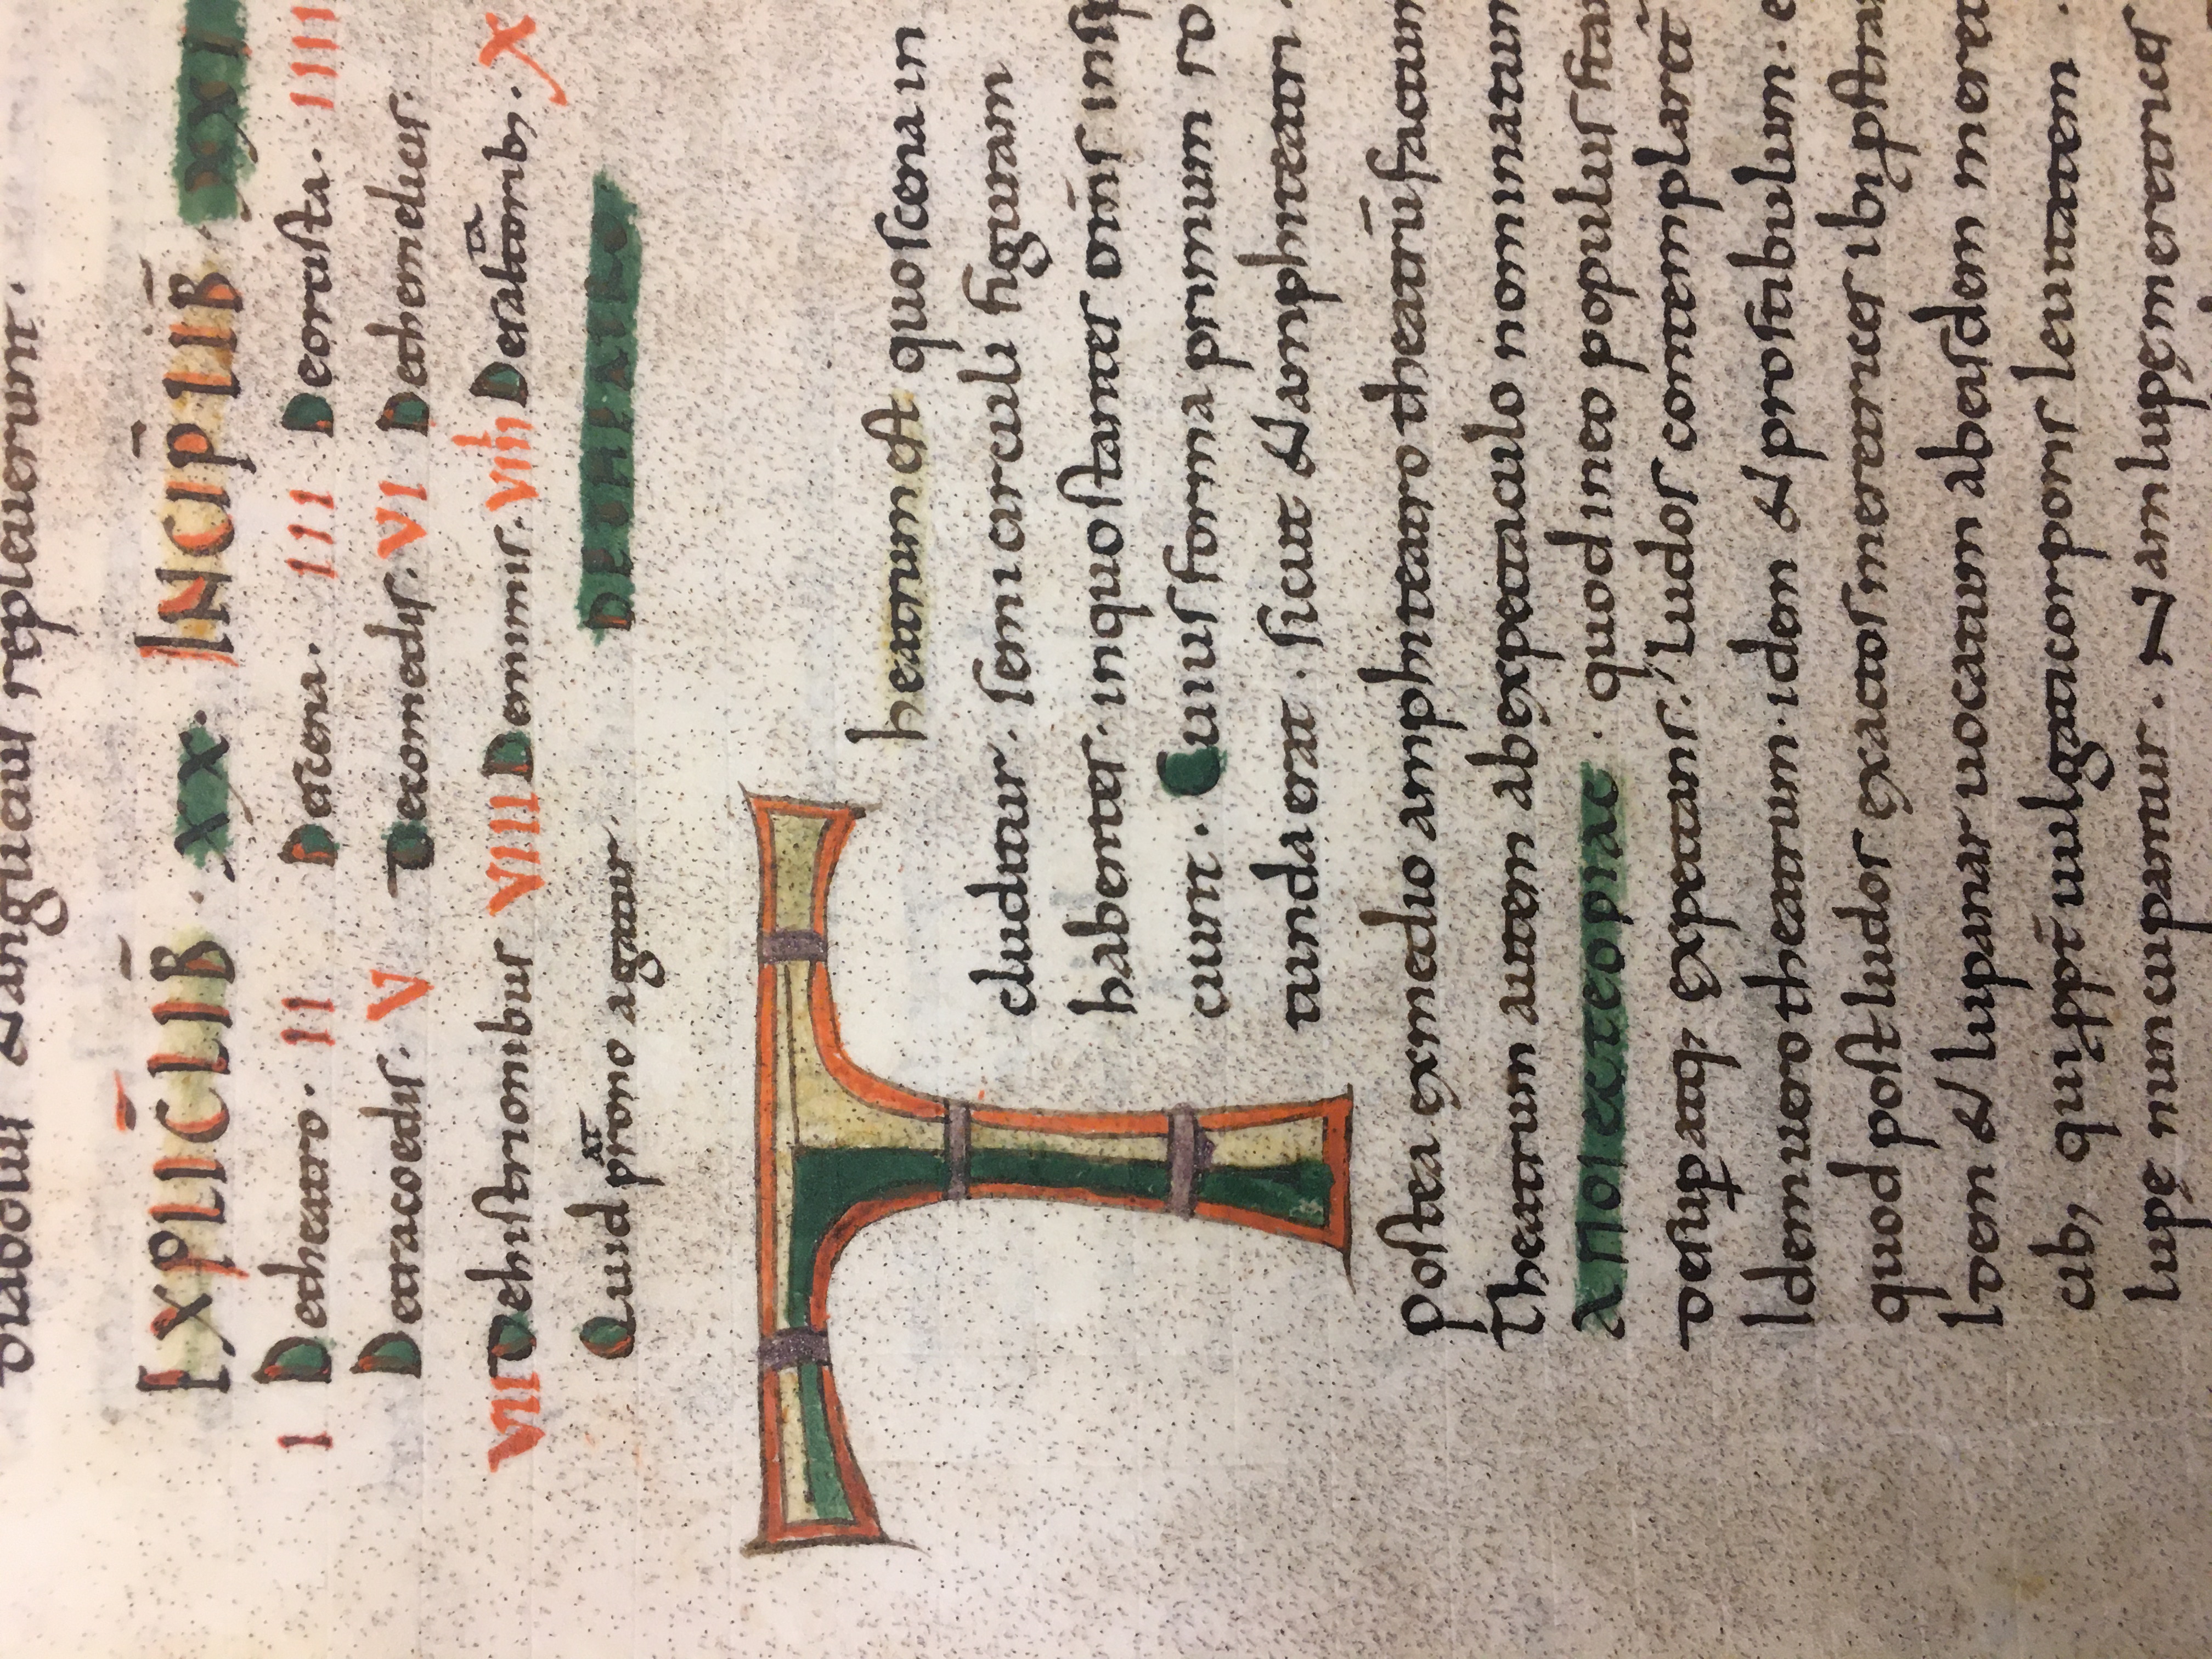 diaboli & angueaur repleuerunt.
EXPLIC̄ LIB̄. XX. INCIP̄ LIB̄ XXI
I De theatro. II De scena. III De orcista. IIII
De tracoedis. V De comedis. VI De themelicis.
VII De histrionibus VIII De mimis. VIIII De saltatorib; X
Quid p̄rono agatur. DE THEATRO
Theatrum est quo scena in
cluditur. semicirculi figuram
habentes. in quo stantes om̄s insp
ciunt. Cuius forma primum ro
tunda erat. sicut & amphiteatri.
postea ex medio amphiteatro theatrū factum
Theatrum autem ab expectaculo nominatum
ΑΠΟΙ quod in eo populus stan
desup atq; expectans. ludos contemplaret̄
Idem uero theatrum. idem & prostibulum. e
quod post ludos exactos meretrices ibi pstra
Idem & lupanar uocatum ab eisdem meretri
cib; qui ppt̄ uulgati corporis leuitatem
lupę nuncupantur. Nam lupę meretrices